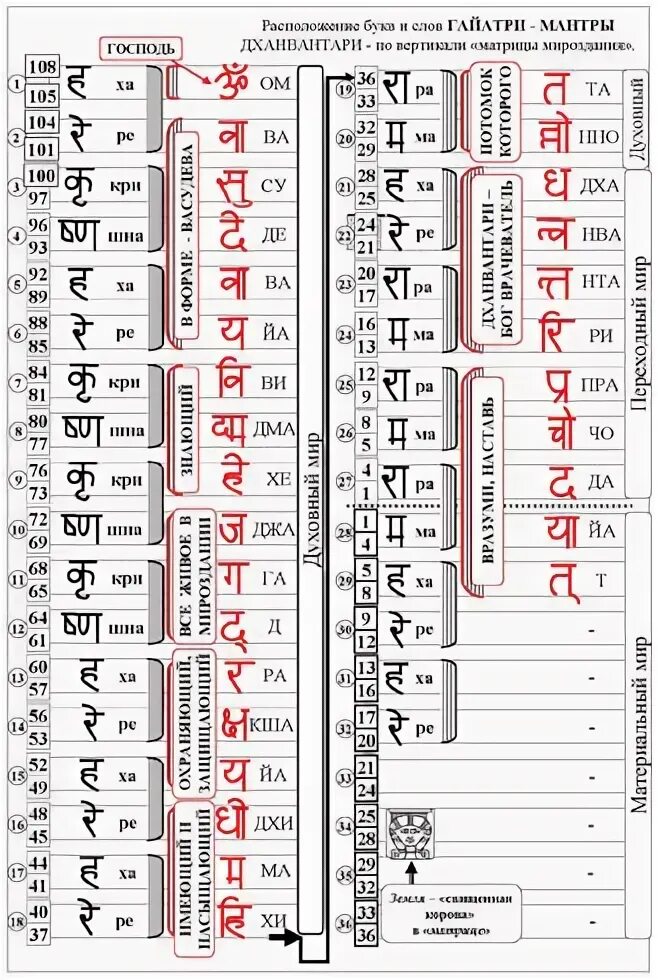 Расположение букв и слов ГАЙАТРИ - МАНТРЫ
ДХАНВАНТАРИ - по вертикали «матрицы мироздание».
ГОСПОДЬ
1 108 105 ह ха ॐ ОМ
2 104 101 रे ре वा ВА
3 100 97 कृ кри सु СУ
4 96 93 ष्ण шна दे ДЕ
5 92 89 ह ха वा ВА
6 88 85 रे ре य ЙА
7 84 81 कृ кри वि ВИ
8 80 77 ष्ण шна द्म ДМА
9 76 73 कृ кри हे ХЕ
10 72 69 ष्ण шна ज ДЖА
11 68 65 कृ кри ग ГА
12 64 61 ष्ण шна द् Д
13 60 57 ह ха र РА
14 56 53 रे ре क्ष КША
15 52 49 ह ха य ЙА
16 48 45 रे ре धी ДХИ
17 44 41 ह ха म МА
18 40 37 रे ре हि ХИ
В ФОРМЕ - ВАСУДЕВА
ЗНАЮЩИЙ
ВСЕ ЖИВОЕ В
МИРОЗДАНИИ
ОХРАНЯЮЩИЙ,
ЗАЩИЩАЮЩИЙ
ИМЕЮЩИЙ И
НАСЫЩАЮЩИЙ
Духовный мир
19 36 33 रा ра त ТА
20 32 29 म ма न्नो ННО
21 28 25 ह ха ध ДХА
22 24 21 रे ре न्व НВА
23 20 17 रा ра न्त НТА
24 16 13 म ма रि РИ
25 12 9 रा ра प्र ПРА
26 8 5 म ма चो ЧО
27 4 1 रा ра द ДА
28 1 4 म ма या ЙА
29 5 8 ह ха त् Т
30 9 12 रे ре -
31 13 16 ह ха -
32 17 20 रे ре -
33 21 24 -
34 25 28 -
35 29 32 -
36 33 36 -
ПОТОМОК
КОТОРОГО
ДХАНВАНТАРИ –
БОГ ВРАЧЕВАТЕЛЬ
ВРАЗУМИ, НАСТАВЬ
Духовный
Переходный мир
Материальный мир
Земля – «священная
корова»
в «матрице»